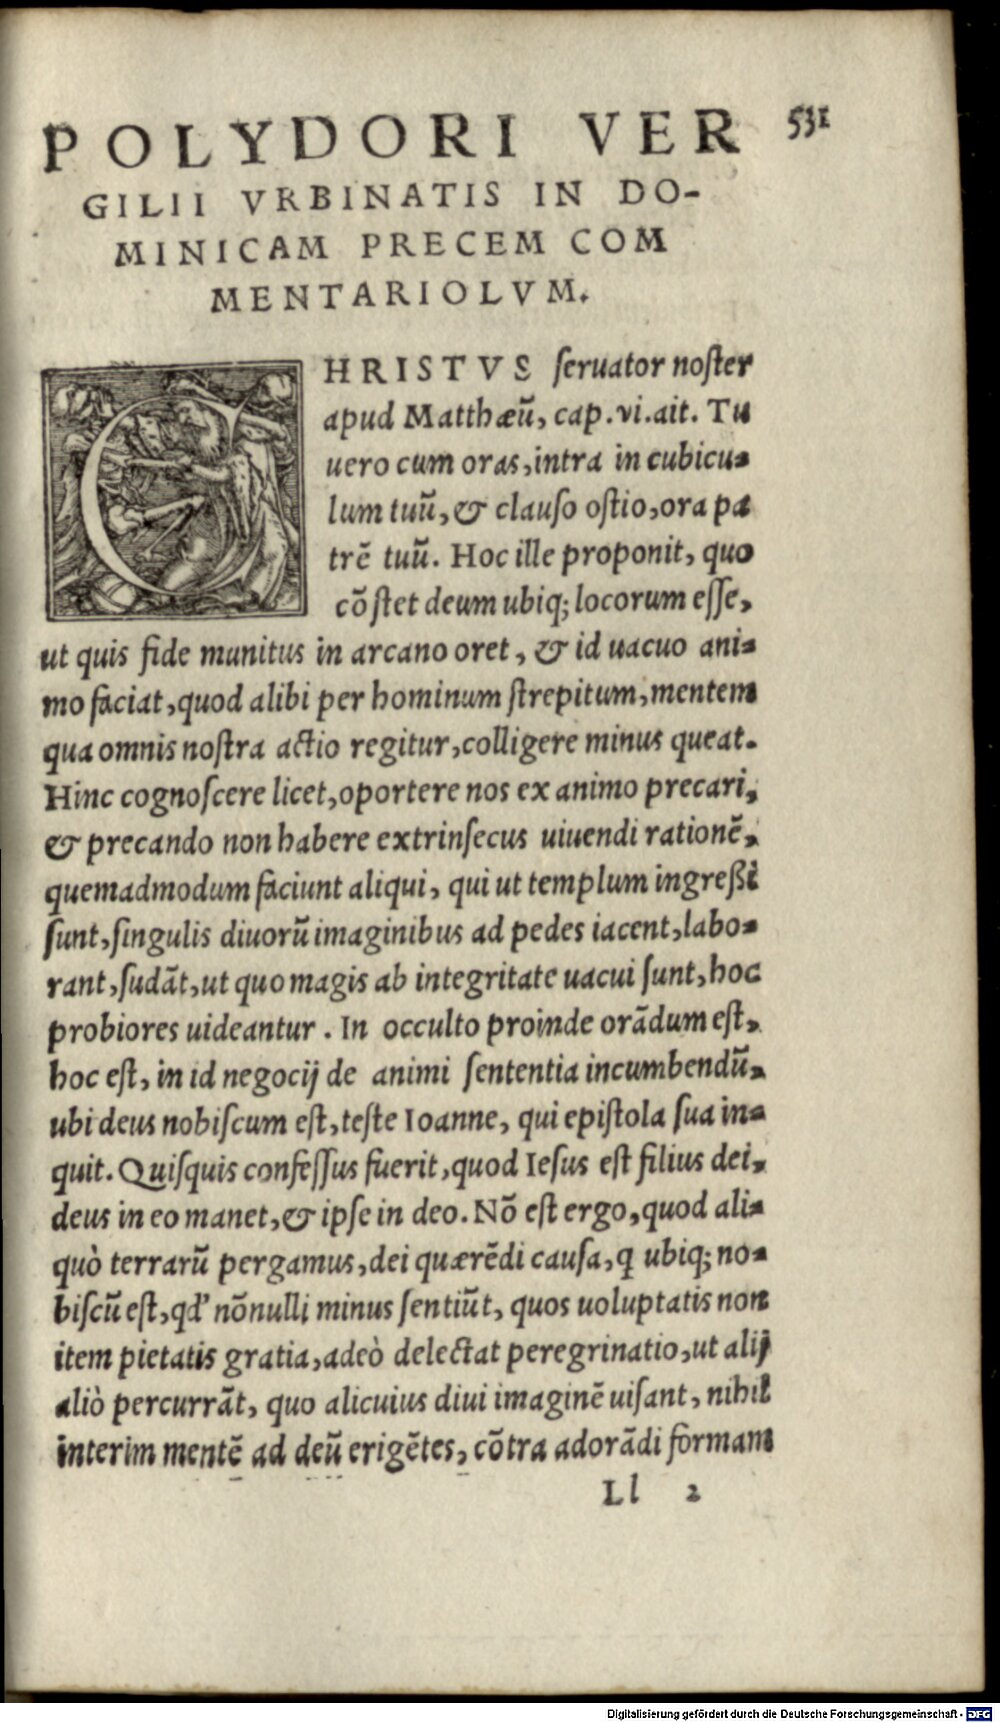 531
POLYDORI VER
GILII VRBINATIS IN DO-
MINICAM PRECEM COM
MENTARIOLVM.
CHRISTVS ſeruator noſter
apud Matthæū, cap.vi.ait. Tu
uero cum oras, intra in cubicu-
lum tuū, & clauſo oſtio, ora pa
trē tuū. Hoc ille proponit, quo
cōſtet deum ubiq; locorum eſſe,
ut quis fide munitus in arcano oret, & id uacuo ani-
mo faciat, quod alibi per hominum ſtrepitum, mentem
qua omnis noſtra actio regitur, colligere minus queat.
Hinc cognoſcere licet, oportere nos ex animo precari,
& precando non habere extrinſecus uiuendi rationē,
quemadmodum faciunt aliqui, qui ut templum ingreßi
ſunt, ſingulis diuorū imaginibus ad pedes iacent, labo-
rant, ſudāt, ut quo magis ab integritate uacui ſunt, hoc
probiores uideantur. In occulto proinde orādum eſt,
hoc eſt, in id negocij de animi ſententia incumbendū,
ubi deus nobiſcum eſt, teſte Ioanne, qui epiſtola ſua in-
quit. Quiſquis confeſſus fuerit, quod Ieſus eſt filius dei,
deus in eo manet, & ipſe in deo. Nō eſt ergo, quod ali-
quò terrarū pergamus, dei quærēdi cauſa, q ubiq; no-
biſcū eſt, qd' nōnulli minus ſentiūt, quos uoluptatis non
item pietatis gratia, adeò delectat peregrinatio, ut alij
aliò percurrāt, quo alicuius diui imaginē uiſant, nihil
interim mentē ad deū erigētes, cōtra adorādi formam
Ll 2
Digitalisierung gefördert durch die Deutsche Forschungsgemeinschaft - DFG